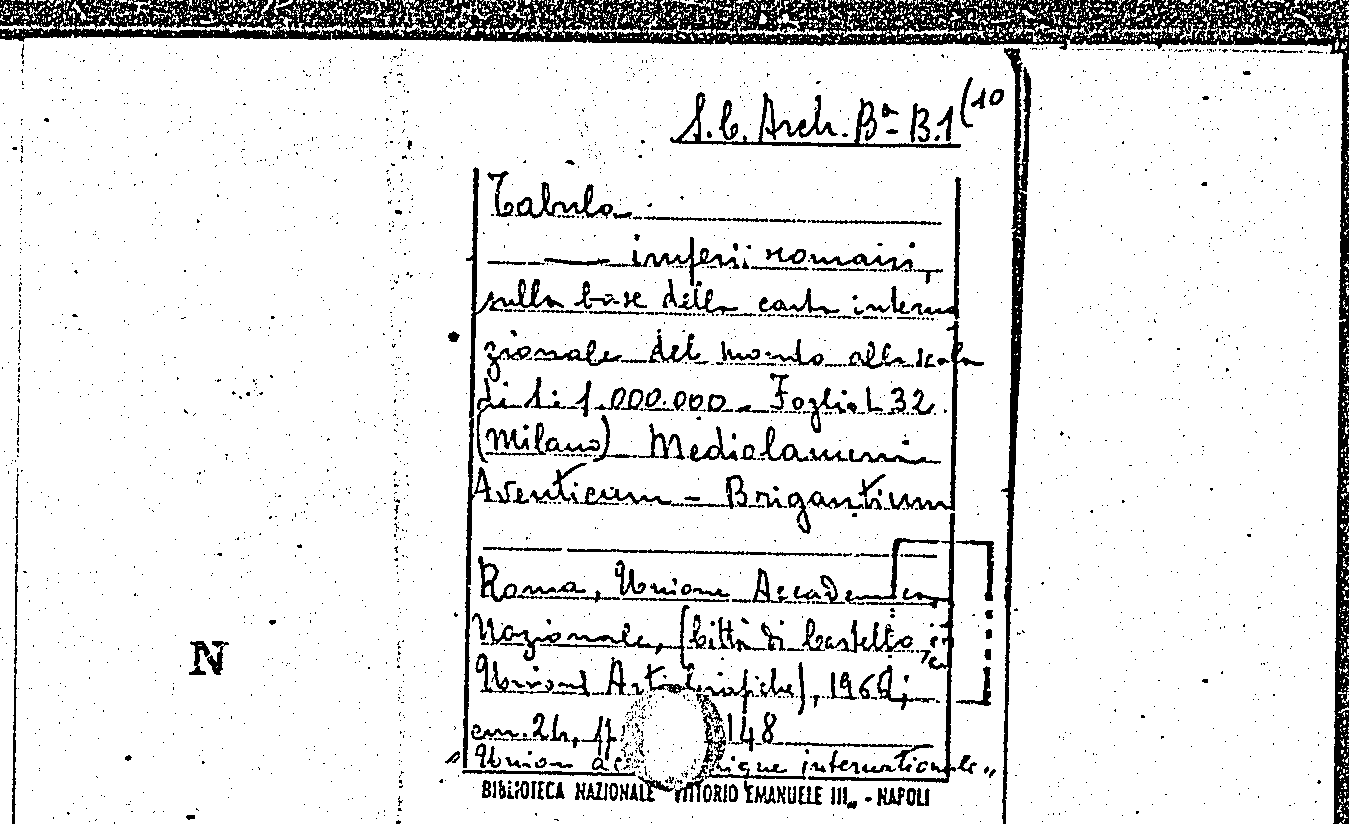 S.C. Arch. Bª B.1 (10
Tabula
imperii romani,
sulla base della carta interna
zionale del mondo alla scala
di 1: 1.000.000 - Foglio L 32.
(Milano) Mediolanum
Aventicum - Brigantium
Roma, Unione Accademica
Nazionale, (Città di Castello,
Unioni Arti Grafiche), 1966;
cm. 24, pp. 148
"Union internationale"
N
BIBLIOTECA NAZIONALE VITTORIO EMANUELE III„ - NAPOLI